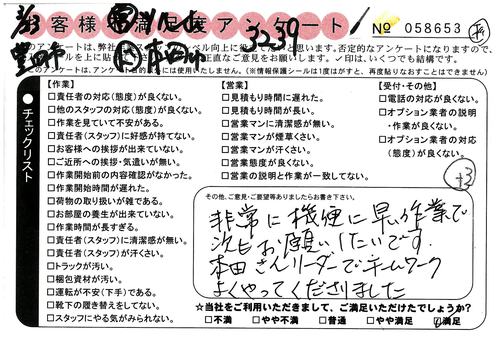 お客様満足度アンケート!
3/23
3239
№ 058653
このアンケートは、弊社
ベル向上に役
と思います。否定的なアンケートになりますので、
正直なご意見をお願いします。✓印は、いくつでも結構です。
このアンケートは、アンケート
には使用いたしません。(※情報保護シールは1度はがすと、再度貼りなおすことはできません)
チェックリスト
【作業】
□責任者の対応(態度)が良くない。
□他のスタッフの対応(態度)が良くない。
□作業を見ていて不安がある。
□責任者(スタッフ)に好感が持てない。
□お客様への挨拶が出来ていない。
□ご近所への挨拶・気遣いが無い。
□作業開始前の内容確認がなかった。
□作業開始時間が遅れた。
□荷物の取り扱いが雑である。
□お部屋の養生が出来ていない。
□作業時間が長すぎる。
□責任者(スタッフ)に清潔感が無い。
□責任者(スタッフ)が汗くさい。
□トラックが汚い。
□梱包資材が汚い。
□運転が不安(下手)である。
□靴下の履き替えをしてない。
□スタッフにやる気がみられない。
【営業】
□見積もり時間に遅れた。
□見積もり時間が長い。
□営業マンに清潔感が無い。
□営業マンが煙草くさい。
□営業マンが汗くさい。
□営業態度が良くない。
□営業の説明と作業が一致してない。
【受付・その他】
□電話の対応が良くない。
□オプション業者の説明
・作業が良くない。
□オプション業者の対応
(態度)が良くない。
+3
その他、ご意見・ご要望等ありましたらお書き下さい。
非常に機敏に早い作業で
次もお願いしたいです。
本田さんリーダーでチームワーク
よくやってくださりました
☆当社をご利用いただきまして、ご満足いただけたでしょうか?
□不満 □やや不満 □普通 □やや満足 ☑満足